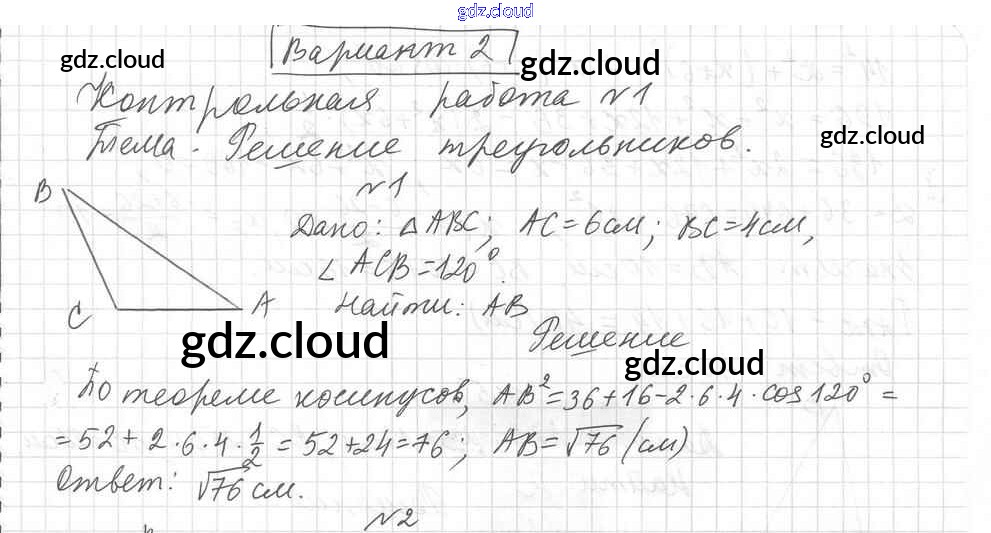 gdz.cloud
Вариант 2
gdz.cloud
gdz.cloud
Контрольная работа №1
gdz.cloud
Тема. Решение треугольников.
№1
B
Дано: △ABC; AC=6см; BC=4см,
∠ACB=120°.
C
A
Найти: AB
gdz.cloud
Решение
gdz.cloud
По теореме косинусов, AB²=36+16-2·6·4·cos120°=
=52+2·6·4·1/2=52+24=76; AB=√76 (см)
Ответ: √76 см.
№2